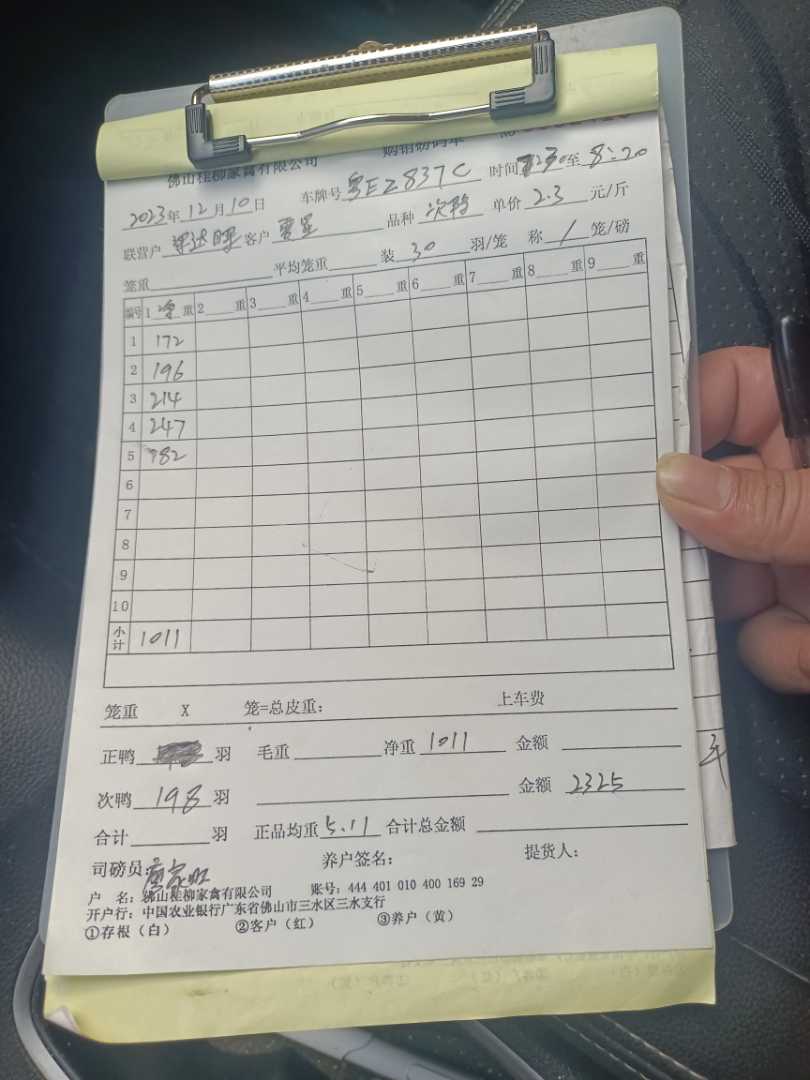 佛山桂柳家禽有限公司 购销磅码单 №
2023年12月10日 车牌号粤EZ837C 时间7:30至8:20
联营户 客户 品种次鸭 单价2.3元/斤
笼重 平均笼重 装30羽/笼 称1笼/磅
编号 1净重 2重 3重 4重 5重 6重 7重 8重 9重
1 172
2 196
3 214
4 247
5 182
6
7
8
9
10
小计 1011
笼重 X 笼=总皮重: 上车费
正鸭 羽 毛重 净重1011 金额
次鸭198羽 金额2325
合计 羽 正品均重5.11 合计总金额
司磅员 养户签名: 提货人:
户 名:佛山桂柳家禽有限公司 账号:444 401 010 400 169 29
开户行:中国农业银行广东省佛山市三水区三水支行
①存根(白) ②客户(红) ③养户(黄)